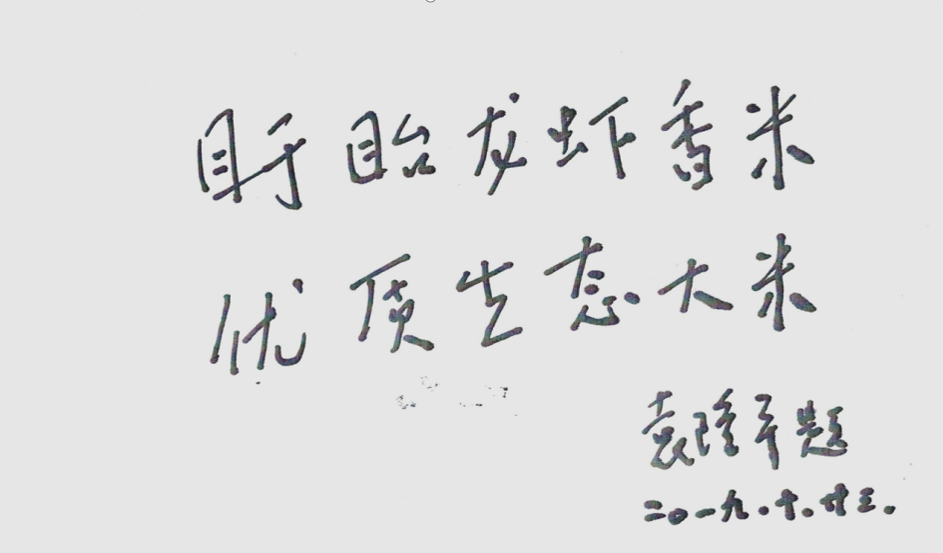 盱眙龙虾香米
优质生态大米
袁隆平题
二〇一九.十.廿三.